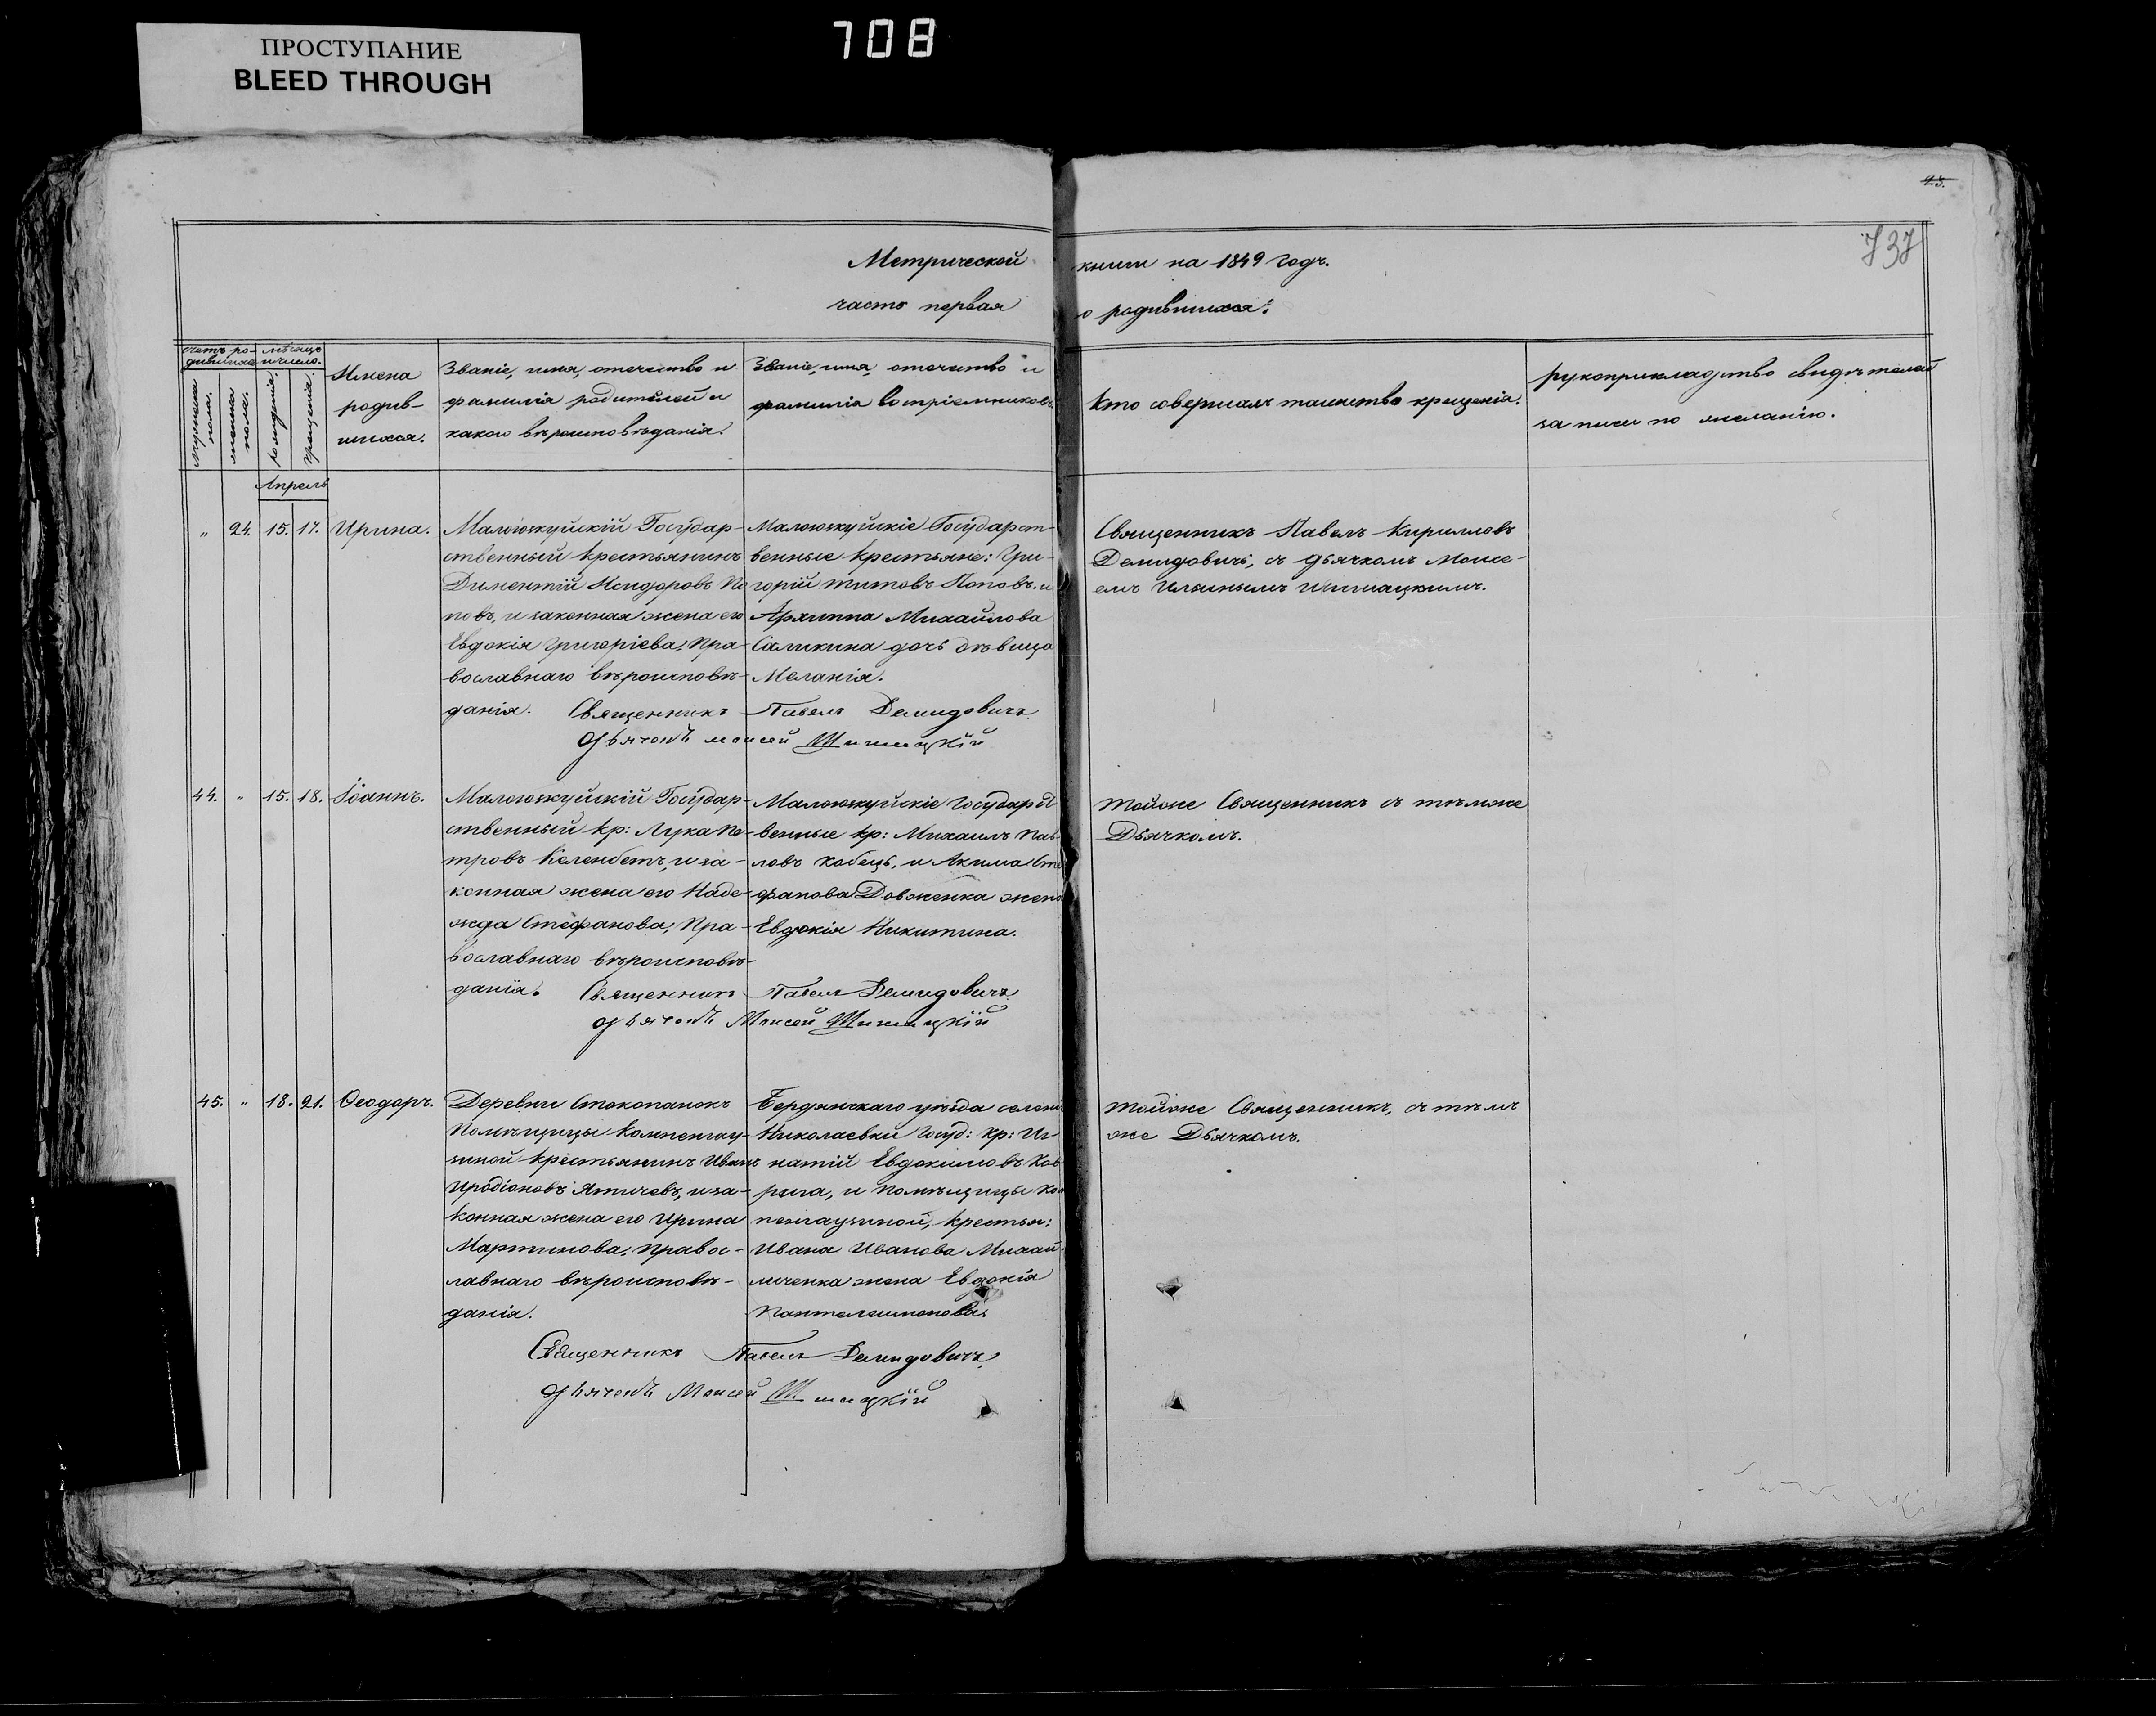 708
ПРОСТУПАНИЕ
BLEED THROUGH
737
Метрической книги на 1849 годъ.
часть первая о родившихся:
счетъ родившихся
мѣсяцъ и число.
мужеска пола.
женска пола.
рожденія.
крещенія.
Имена
родив-
шихся.
Званіе, имя, отечество и
фамилія родителей и
какого вѣроисповѣданія.
Званіе, имя, отечество и
фамилія воспріемниковъ
Кто совершалъ таинство крещенія.
рукоприкладство свидѣтелей
записи по желанію.
Апрель
" 24. 15. 17. Ирина.
Малоюжкуйскій Государ-
ственный крестьянинъ
Диментій Исидоровъ По
повъ, и законная жена его
Евдокія Григоріева, Пра-
вославнаго вѣроисповѣ-
данія.
Малоюжкуйскіе Государст-
венные крестьяне: Гри-
горій Титовъ Поповъ. и
Михайлова
Саликина дочь дѣвица
Меланія.
Священникъ Павелъ Кирилловъ
Демидовичъ, съ дьячкомъ Моисе-
емъ Ильинымъ Шишацкимъ.
Священникъ Павелъ Демидовичъ
Дьячокъ Моисей Шишацкій
44. " 15. 18. Іоаннъ.
Малоюжкуйскій Государ-
ственный кр: Лука Пе-
тровъ Келенбетъ, и за-
конная жена его Наде-
жда Стефанова, Пра-
вославнаго вѣроисповѣ-
данія.
Малоюжкуйскіе Государст
венные кр: Михаилъ Пав-
ловъ Кобецъ, и Акима Сте
фанова Довженка жена
Евдокія Никитина.
тойже Священникъ съ тѣмже
Дьячкомъ.
Священникъ Павелъ Демидовичъ
Дьячокъ Моисей Шишацкій
45. " 18. 21. Ѳеодоръ.
Деревни Стокопанокъ
Помѣщицы Компенгау-
зиной крестьянинъ Иванъ
Иродіоновъ Ятичевъ, и за-
конная жена его Ирина
Мартинова, правос-
лавнаго вѣроисповѣ-
данія.
Бердянскаго уѣзда селен
Николаевки Госуд: кр: Иг-
натій Евдокимовъ Ков
рига, и помѣщицы Ко
пенгаузиной, крестьян:
Ивана Иванова Михай-
личенка жена Евдокія
Пантелеимонова.
тойже Священникъ, съ тѣмъ
же Дьячкомъ.
Священникъ Павелъ Демидовичъ
Дьячокъ Моисей Шишацкій